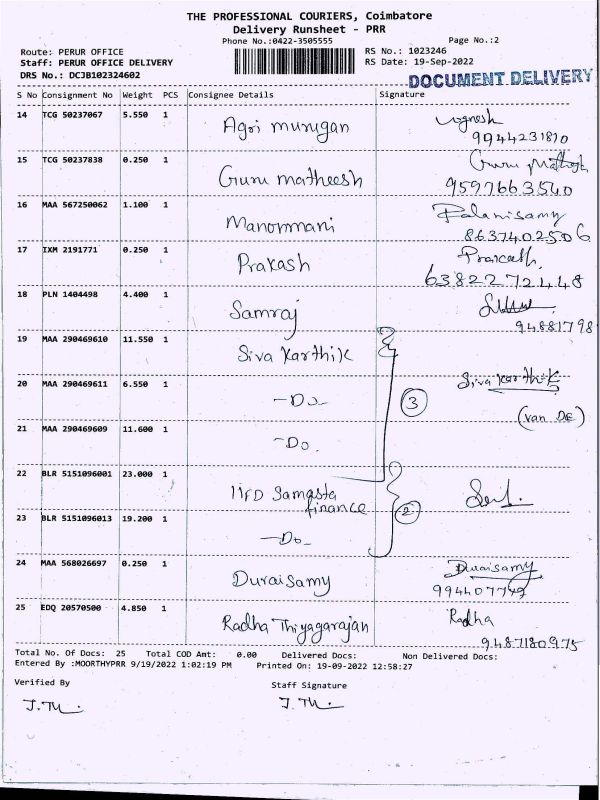 THE PROFESSIONAL COURIERS, Coimbatore
Delivery Runsheet - PRR
Phone No.:0422-3505555 Page No.:2
Route: PERUR OFFICE RS No.: 1023246
Staff: PERUR OFFICE DELIVERY RS Date: 19-Sep-2022
DRS No.: DCJB102324602
DOCUMENT DELIVERY
S No Consignment No Weight PCS Consignee Details Signature
14 TCG 50237067 5.550 1 Agri murugan Vignesh
9944231810
15 TCG 50237838 0.250 1 Guru matheesh Guru
9597663540
16 MAA 567250062 1.100 1 Manonmani Palanisamy
8637402506
17 IXM 2191771 0.250 1 Prakash Prakash
6382272448
18 PLN 1404498 4.400 1 Samraj
94881798
19 MAA 290469610 11.550 1 Siva Karthik
20 MAA 290469611 6.550 1 -Do- 3 Siva Karthik
(Van DE)
21 MAA 290469609 11.600 1 -Do.
22 BLR 5151096001 23.000 1 IIFD Samasta
finance 2
23 BLR 5151096013 19.200 1 -Do-
24 MAA 568026697 0.250 1 Duraisamy Duraisamy
25 EDQ 20570500 4.850 1 Radha Thiyagarajan Radha
9487180975
Total No. Of Docs: 25 Total COD Amt: 0.00 Delivered Docs: Non Delivered Docs:
Entered By :MOORTHYPRR 9/19/2022 1:02:19 PM Printed On: 19-09-2022 12:58:27
Verified By Staff Signature